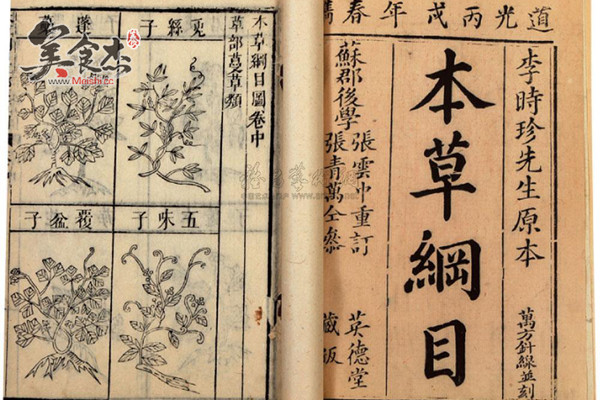 道光丙戌年春鐫
李時珍先生原本
萬方針線並刻
本草綱目
蘇郡後學
張雲中重訂
張青萬仝參
英德堂
藏版
本草綱目圖卷中
草部蔓草類
兎絲子
五味子
覆盆子
美食杰
www.Meishi.cc